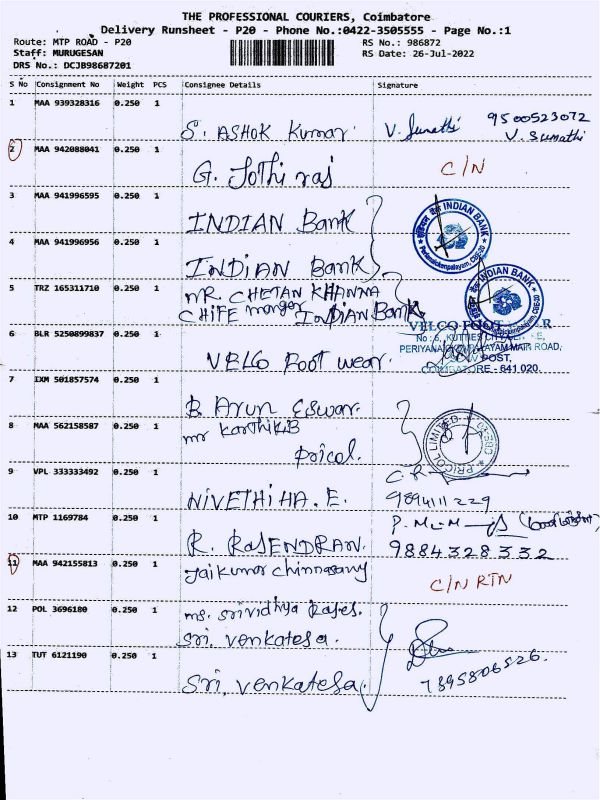 THE PROFESSIONAL COURIERS, Coimbatore
Delivery Runsheet - P20 - Phone No.:0422-3505555 - Page No.:1
Route: MTP ROAD - P20
RS No.: 986872
Staff: MURUGESAN
RS Date: 26-Jul-2022
DRS No.: DCJB98687201
S No Consignment No Weight PCS Consignee Details Signature
1 MAA 939328316 0.250 1
S. ASHOK Kumar. V. Sumathi 9500523072
V. Sumathi
2 MAA 942088041 0.250 1
G. Jothi raj C/N
3 MAA 941996595 0.250 1
INDIAN Bank
INDIAN BANK
Perianaickenpalayam, CBE-20
4 MAA 941996956 0.250 1
INDIAN Bank
5 TRZ 165311710 0.250 1
MR. CHETAN KHANNA
CHIFE manger Indian Bank
INDIAN BANK
Periyanaickenpalayam, CBE-20
6 BLR 5250899837 0.250 1
VELCO FOOT
No : 5, KUTTIES
MAIN ROAD,
POST,
COIMBATORE - 641 020.
VELCO Foot wear.
7 IXM 501857574 0.250 1
B. Arun Eswar.
8 MAA 562158587 0.250 1
mr Karthik.B
Pricol.
PRICOL LIMITED
9 VPL 333333492 0.250 1
C.R
NIVETHIHA. E. 9894111229
10 MTP 1169784 0.250 1
R. RAJENDRAN. 9884328332
11 MAA 942155813 0.250 1
Jaikumar Chinnasamy
C/N RTN
12 POL 3696180 0.250 1
ms. Srividhya Rajes.
Sri. Venkatesa.
13 TUT 6121190 0.250 1
Sri. Venkatesa. 7395806526.